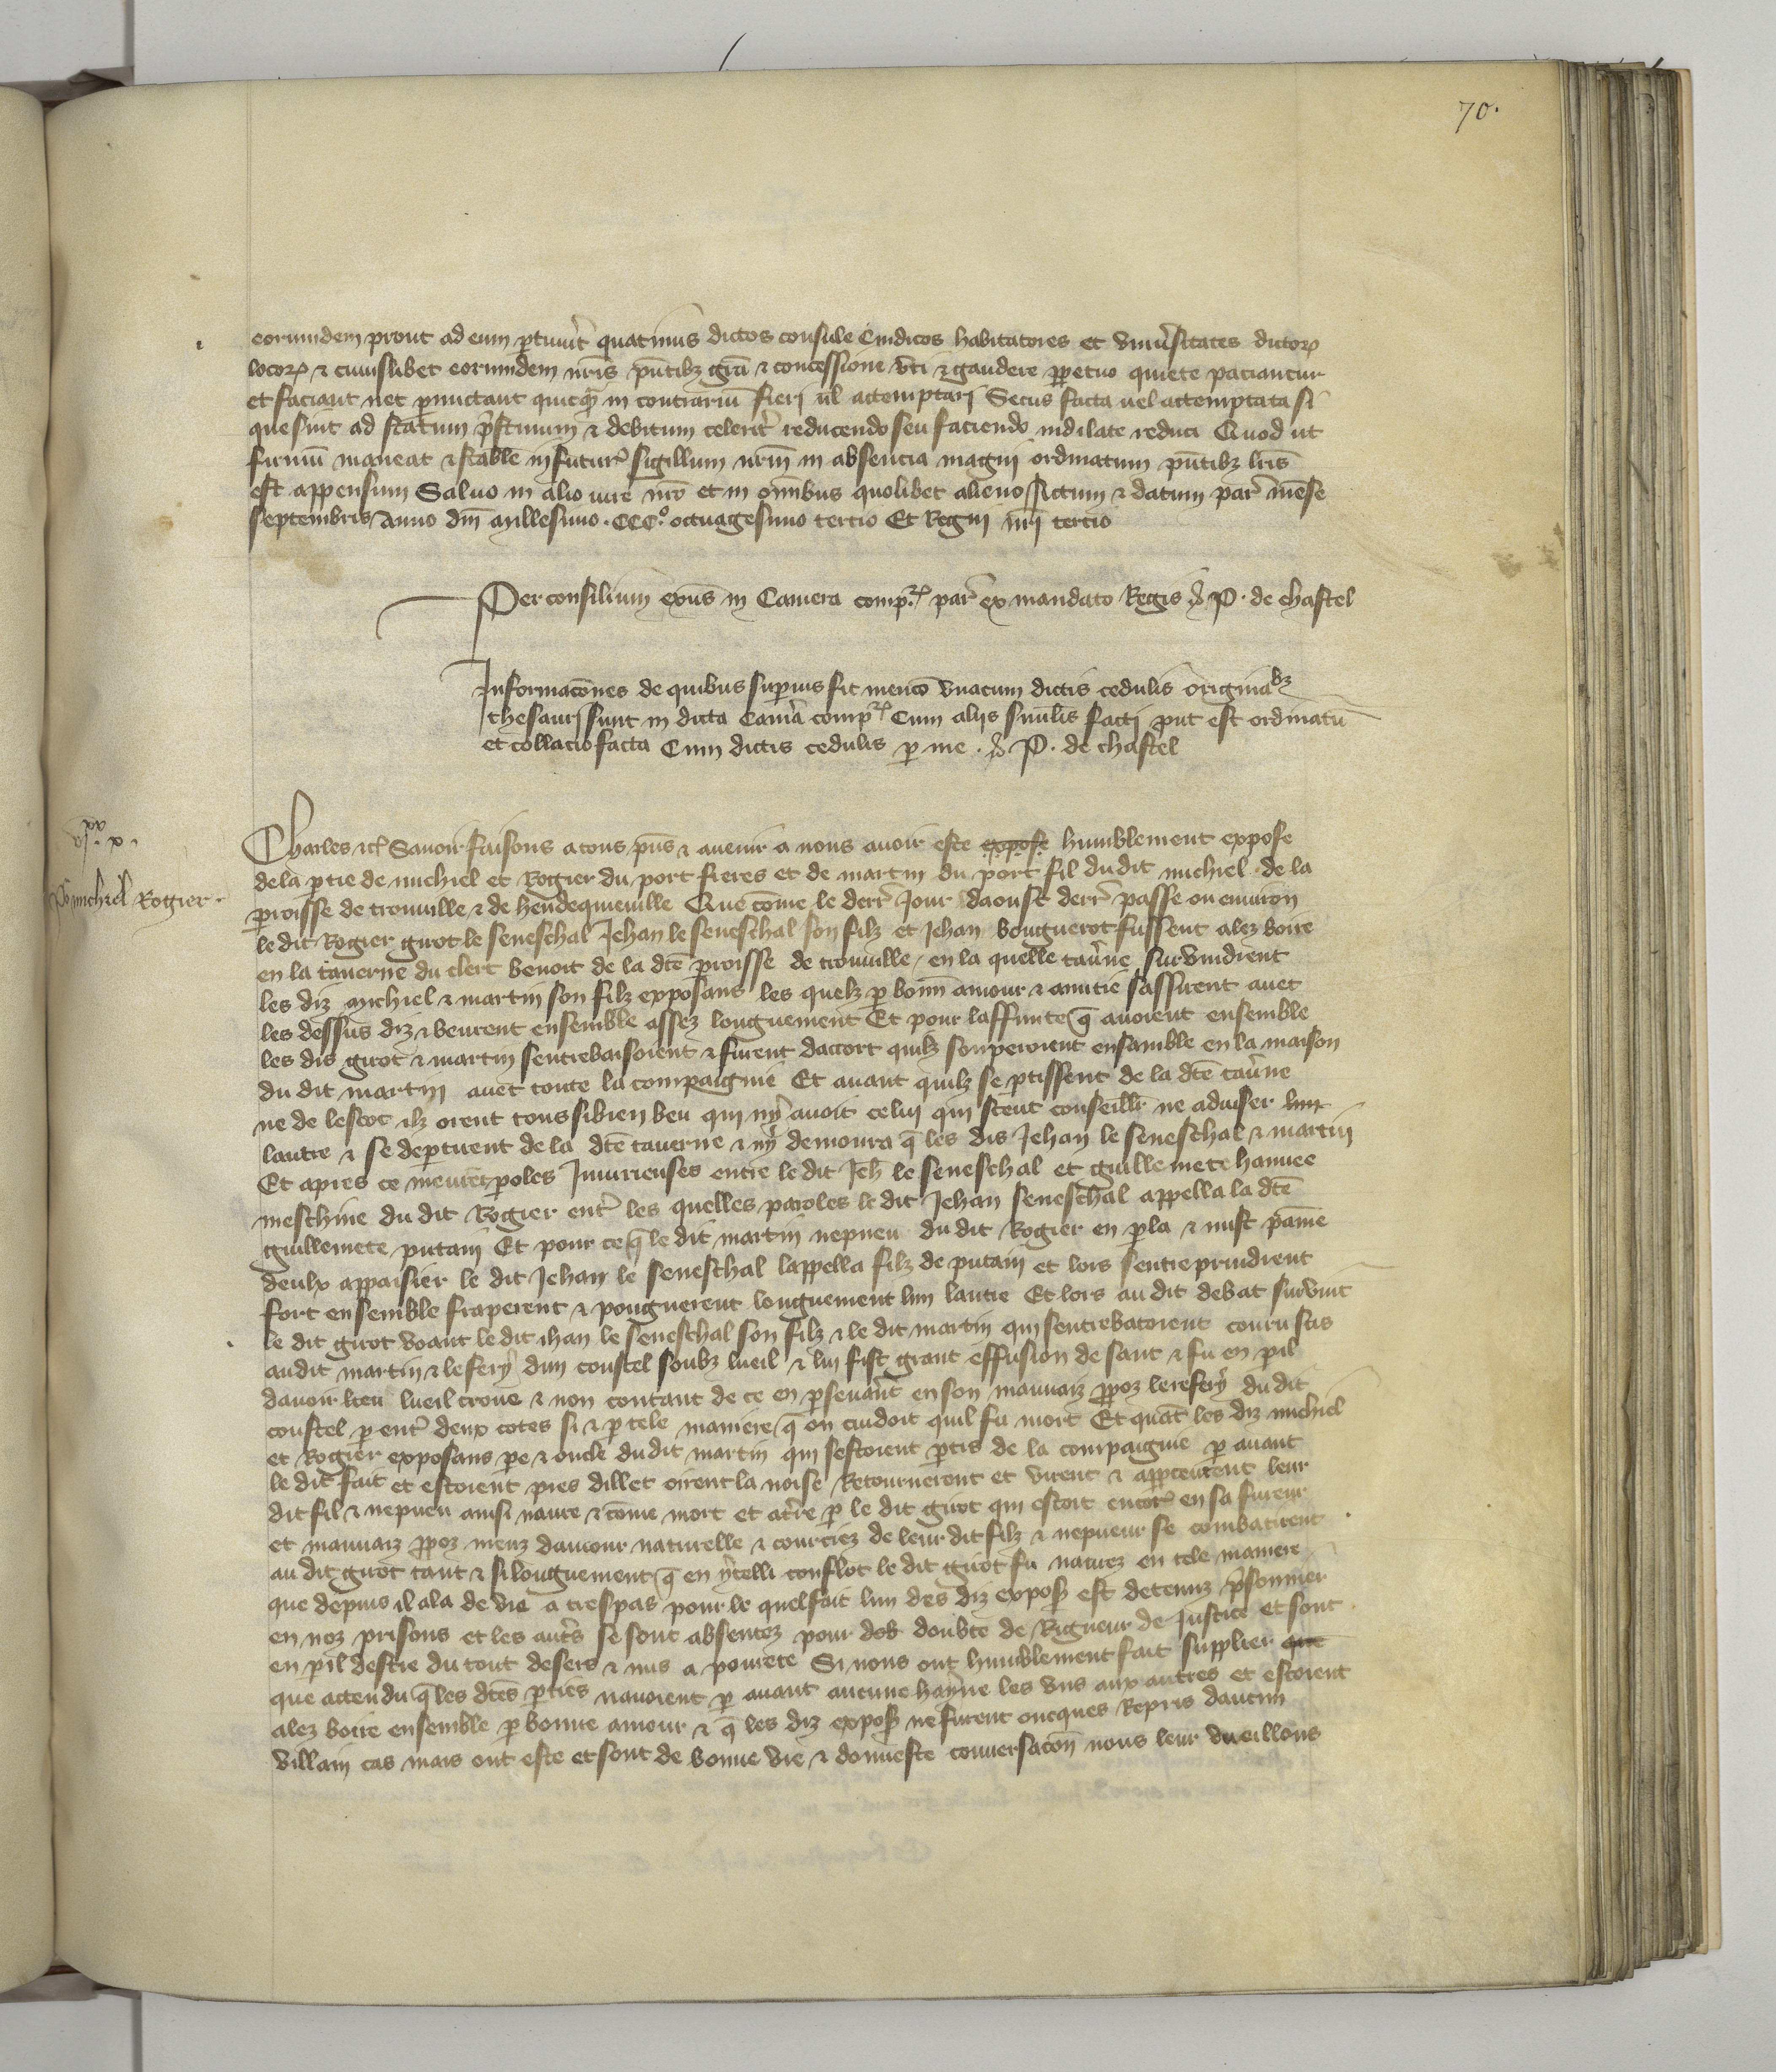 70.
eorumdem prout ad eum ptinu'it quatinus dictos consules sindicos habitatores et vniu'sitates dictor
locor & cuiuslibet eorumdem nr̄is pn̄tibz grā & concessione vti & gaudere ppetuo quiete paciantur
et faciant nec pmictant quicq̄ in contrariū fieri ul actemptari Secus facta uel actemptata si
que sint ad statum p̄stinum & debitum celerit' reducendo seu faciendo indilate reduci Quod ut
firmū maneat & stabile in futur' sigillum nr̄m in absencia magni ordinatum pn̄tibz lr̄is
est appensum Saluo in alio iure nr̄o et in om̄ibus quolibet alieno Actum & datum par' mēse
septembris Anno dn̄i Millesimo . CCC.º octuagesimo tercio Et Regni nr̄i tercio
Per consilium exn̄s in Camera compr par' ex mandato Regis P. de chastel
Informacōnes de quibus superius fit mencō vnacum dictis cedulis originabz
thesauri sunt in dicta Cam'a compr Cum alijs simil̄is facti put est ordinatū
et collacio facta Cum dictis cedulis p me . P. de chastel
P' michiel Rogier .
Charles &c Sauoir faisons a tous pn̄s & auenir a nous auoir este expose humblement expose
de la ptie de michiel et Rogier du port freres et de martin du port fil du dit michiel . de la
proisse de trouuille & de hendequieuille Que cōme le derr' Jour daoust derr' passe ou enuiron
le dit Rogier girot le seneschal Jehan le seneschal son filz et Jehan bouguerot fussent alez boire
en la tauerne du clerc benoit de la dc̄e proisse de trouuille / en la quelle tau'ne suruindrent
les diz Michiel & martin son filz exposans les quelz p bonn amour & amitie sassirent auec
les dessus diz & beurent ensemble assez longuement Et pour laffinite q̄ auoient ensemble
les dis girot & martin sentrebaisoient & furent daccort quilz soupperoient ensamble en la maison
du dit martin auec toute la compaignie Et auant quilz se ptissent de la dc̄e tau'ne
ne de lescot ilz orent tous si bien beu qui ny auoit celui qui sceut conseill' ne aduiser lun
lautre & se deptirent de la dc̄e tauerne & ny demoura q̄ les dis Jehan le seneschal & martin
Et apres ce meurent poles Iniurieuses entre le dit Jeh le seneschal et guillemete hanuee
meschine du dit Rogier ent' les quelles paroles le dit Jehan seneschal appella la dc̄e
guillemete putain Et pour ce q̄ le dit martin nepueu du dit Rogier en pla & mist pāme
deulx appaisier le dit Jehan le seneschal lappella filz de putain et lors sentreprindrent
fort ensemble fraperent & poignerent longuement lun lautre Et lors au dit debat suruint
le dit girot voant le dit ihan le seneschal son filz & le dit martin qui sentrebatoient couru sus
au dit martin & le fery dun coustel soubz lueil & lui fist grant effusion de sanc & fu en pil
dauoir lueil creue & non contant de ce en pseuant en son mauuaiz ppoz le refery du dit
coustel p ent' deux cotes si & p tele maniere q̄ on cuidoit quil fu mort Et quāt les diz michiel
et Rogier exposans pe & oncle du dit martin qui sestoient ptis de la compaignie p auant
le dit fait et estoient pres dillec oirent la noise Retournerent et virent & apperceurent leur
dit fil & nepueu ainsi naure & cōme mort et at're p le dit girot qui estoit encor en sa fureur
et mauuaiz ppoz meuz damour naturelle & courciez de leur dit filz & nepueur se combatirent
au dit girot tant & si longuement q̄ en y'celli conflot le dit girot fu naurez en tele maniere
que depuis il ala de vie a trespas pour le quel fait lun des diz exposs est detenuz p'sonnier
en noz prisons et les aut's se sont absentez pour dob doubte de Rigueur de Justice et sont
en pil destre du tout desers & mis a pourete Si nous ont humblement fait supplier que
que actendu q̄ les dc̄es pties nauoient p auant aucune hayne les vns aux autres et estoient
alez boire ensemble p bonne amour & q̄ les diz exposs ne furent oncques Repris daucun
villain cas mais ont este et sont de bonne vie & donneste conuersacōn nous leur vueillons